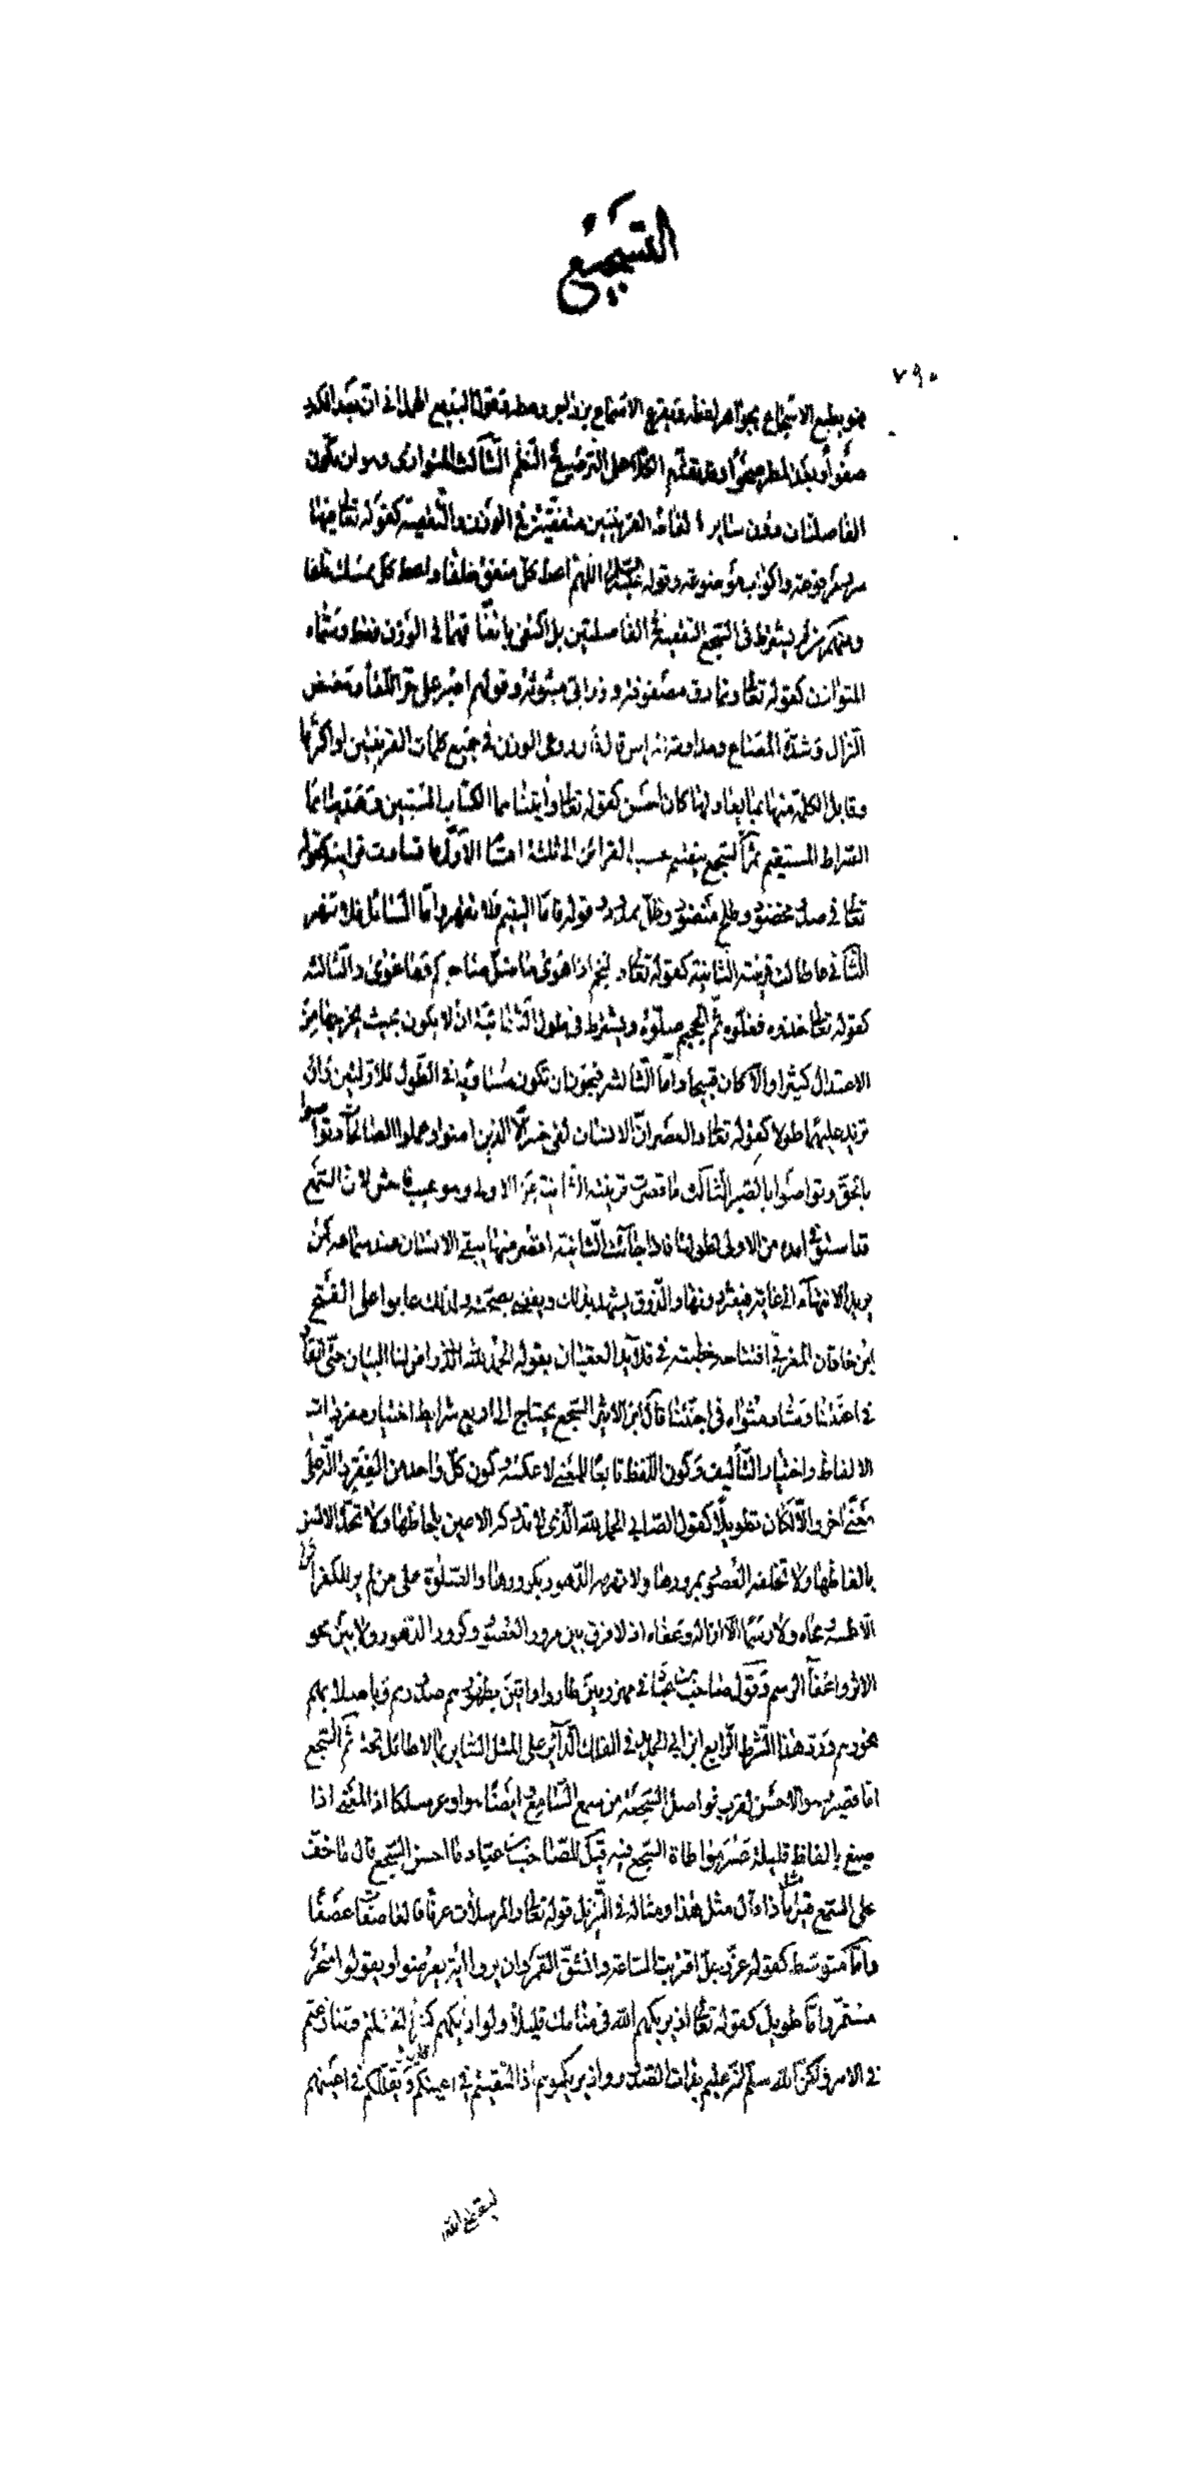 التسجيع
٧٩٠
فهو يطبع الاسجاع بجواهر لفظه ويقرع الاسماع بزواجر وعظه وقول البديع الهمداني ان بعد الكدر
صفوا وبعد المطر صحوا وقد تقدم الكلام على الترصيع في النظم الثالث المتوازى وهو ان تكون
الفاصلتان دون ساير الفاظ القرينتين متفقتين في الوزن والتقفية كقوله تعالى فيها
سرر مرفوعة واكواب موضوعة وقوله عليه السلام اللهم اعط كل منفق خلفا واعط كل ممسك تلفا
ومنهم من لم يشترط في السجع التقفية في الفاصلتين بل اكتفى باتفاقهما في الوزن فقط وسماه
المتوازن كقوله تعالى ونمارق مصفوفة وزرابي مبثوثة وقولهم اصبر على حر اللقاء ومضض
النزال وشدة المصاع ومداومة المراس قال فان روعى الوزن في جميع كلمات القرينتين او اكثرها
وقابل الكلمة منها بما يعادلها كان احسن كقوله تعالى وآتيناهما الكتاب المستبين وهديناهما
الصراط المستقيم ثم السجع ينقسم حسب القرائن الى ثلثة اقسام الاول ما تساوت قرائنه كقوله
تعالى في سدر مخضود وطلح منضود وظل ممدود وقوله فاما اليتيم فلا تقهر واما السائل فلا تنهر
الثاني ما طالت قرينته الثانية كقوله تعالى والنجم اذا هوى ما ضل صاحبكم وما غوى والثالثة
كقوله تعالى خذوه فغلوه ثم الجحيم صلوه ويشترط في طول الثانية ان لا يكون بحيث يخرجها من
الاعتدال كثيرا والا كان قبيحا واما الثالثة فيجوز ان تكون مساوية في الطول للاوليين وان
تزيد عليهما طولا كقوله تعالى والعصر ان الانسان لفي خسر الا الذين امنوا وعملوا الصالحات وتواصوا
بالحق وتواصوا بالصبر الثالث ما قصرت قرينته الثانية عن الاولى وهو عيب فاحش لان السمع
قد استوفى امده من الاولى لطولها فاذا جاءت الثانية اقصر منها يبقى الانسان عند سماعه كمن
يريد الانتهاء الى غاية فيعثر دونها والذوق يشهد بذلك ويقضى بصحته ولذلك عابوا على الفتح
ابن خاقان المغربي افتتاحه خطبته في قلايد العقيان بقوله الحمد لله الذي راض لنا البيان حتى انقاد
في اعنتنا وشاد مثواه في اجنتنا قال ابن الاثير السجع يحتاج الى اربع شرايط اختيار مفردات
الالفاظ واختيار التأليف وكون اللفظ تابعا للمعنى لا عكسه وكون كل واحد من الفقر دالة على
معنى اخر والا لكان تطويلا كقول الصابي الحمد لله الذي لا تدركه الاعين بلحاظها ولا تحده الالسن
بالفاظها ولا تخلقه العصور بمرورها ولا تهرمه الدهور بكرورها والصلوة على من لم ير للكفر اثرا
الا طمسه ومحاه ولا رسما الا ازاله وعفاه اذ لا فرق بين مرور العصور وكرور الدهور ولا بين محو
الاثر واعفاء الرسم وقول صاحب بن عباد في مهزومين طاروا واقين بظهورهم صدورهم وباصلابهم
نحورهم ورد هذا الشرط الرابع ابن ابي الحديد في الفلك الدائر على المثل السائر بما لا طائل تحته ثم السجع
اما قصير وهو الاحسن لقرب فواصل السجعة من سمع السامع وايضا هو اوعر مسلكا اذ المعنى اذا
صيغ بالفاظ قليلة عسر مواطاة السجع فيه قيل للصاحب بن عباد ما احسن السجع قال ما خف
على السمع قيل مثل ماذا قال مثل هذا ومثاله في التنزيل قوله تعالى والمرسلات عرفا فالعاصفات عصفا
واما متوسط كقوله عز وجل اقتربت الساعة وانشق القمر وان يروا اية يعرضوا ويقولوا سحر
مستمر واما طويل كقوله تعالى اذ يريكهم الله في منامك قليلا ولو اراكهم كثيرا لفشلتم وتنازعتم
في الامر ولكن الله سلم انه عليم بذات الصدور واذ يريكموهم اذ التقيتم في اعينكم قليلا ويقللكم في اعينهم
ليقضي الله